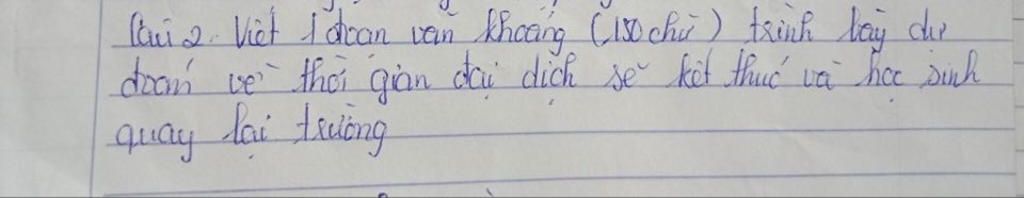 Câu 2. Viết 1 đoạn văn khoảng (150 chữ) trình bày dự
đoán về thời gian đại dịch sẽ kết thúc và học sinh
quay lại trường